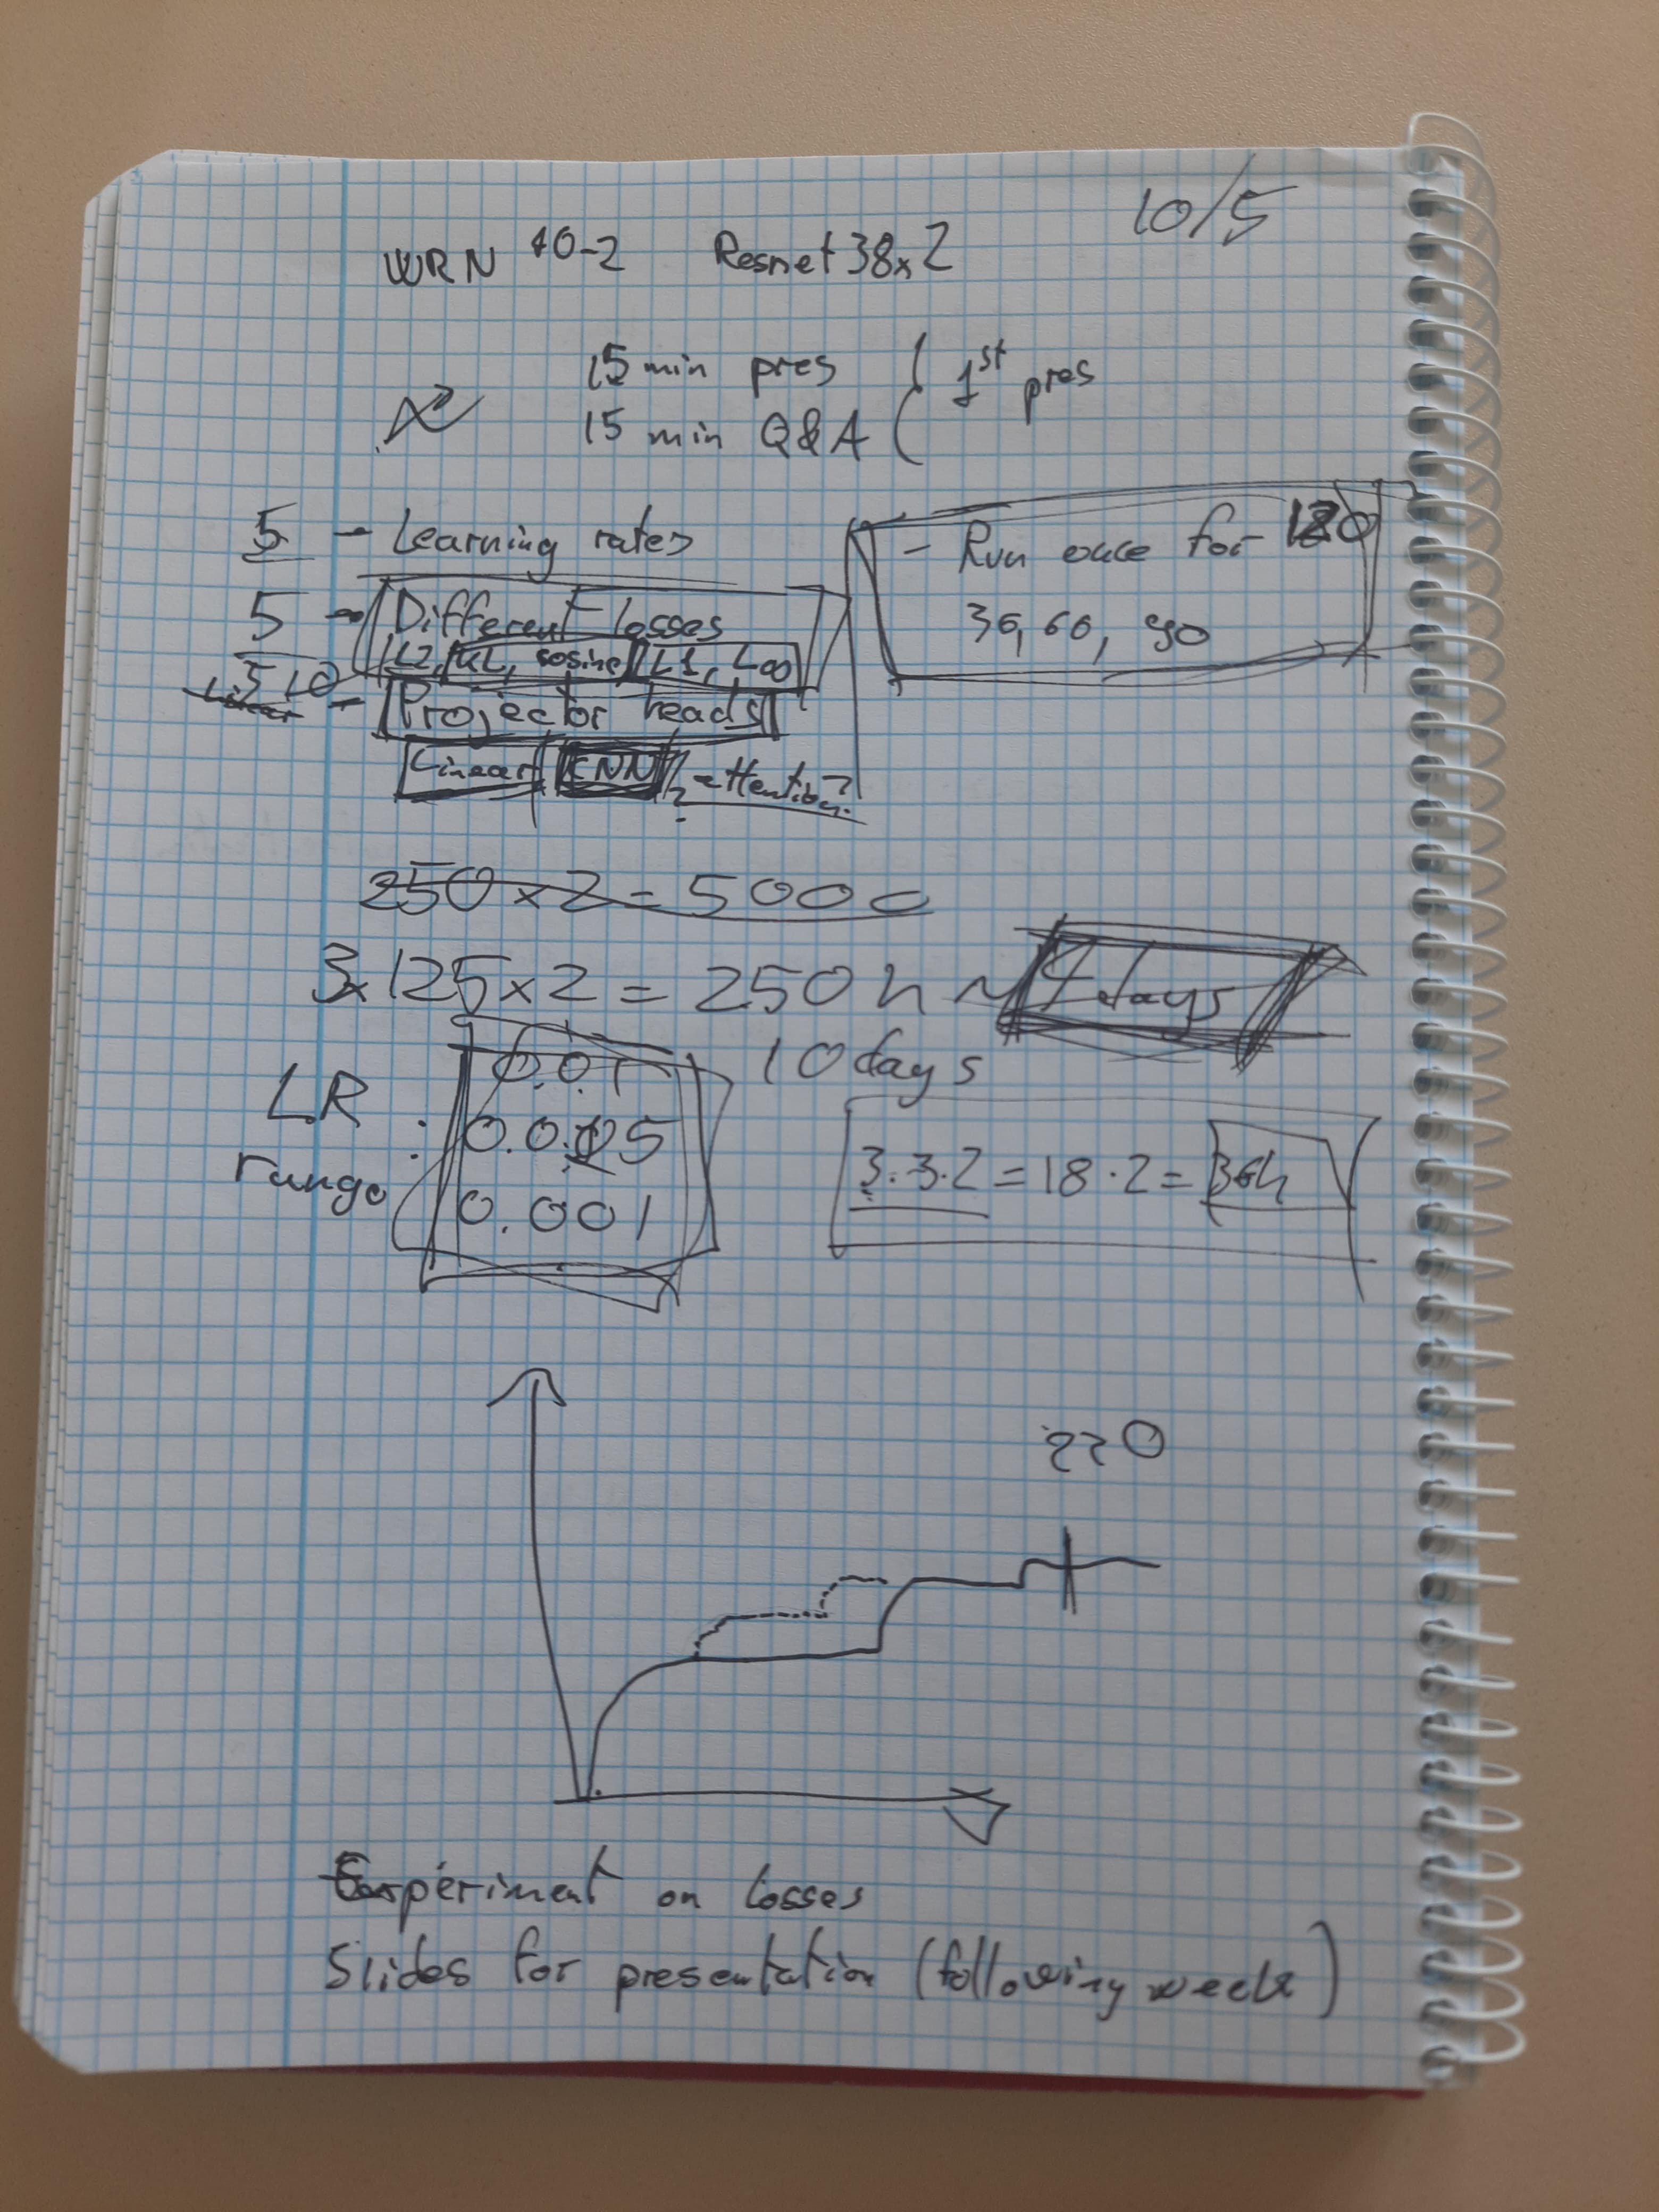 10/5
WRN 40-2 Resnet 38x2
15 min pres
15 min Q&A
1st pres
5 - Learning rates
5 - Different losses
L2, KL, cosine, L1, L∞
10 - Projector heads
Linear CNN, attention?
- Run once for
30, 60, 90
250 x 2 = 5000
3x125x2 = 250h ~ days
10 days
LR range :
0.01
0.001
3.3.2 = 18.2 = 36h
Experiment on losses
Slides for presentation (following week)